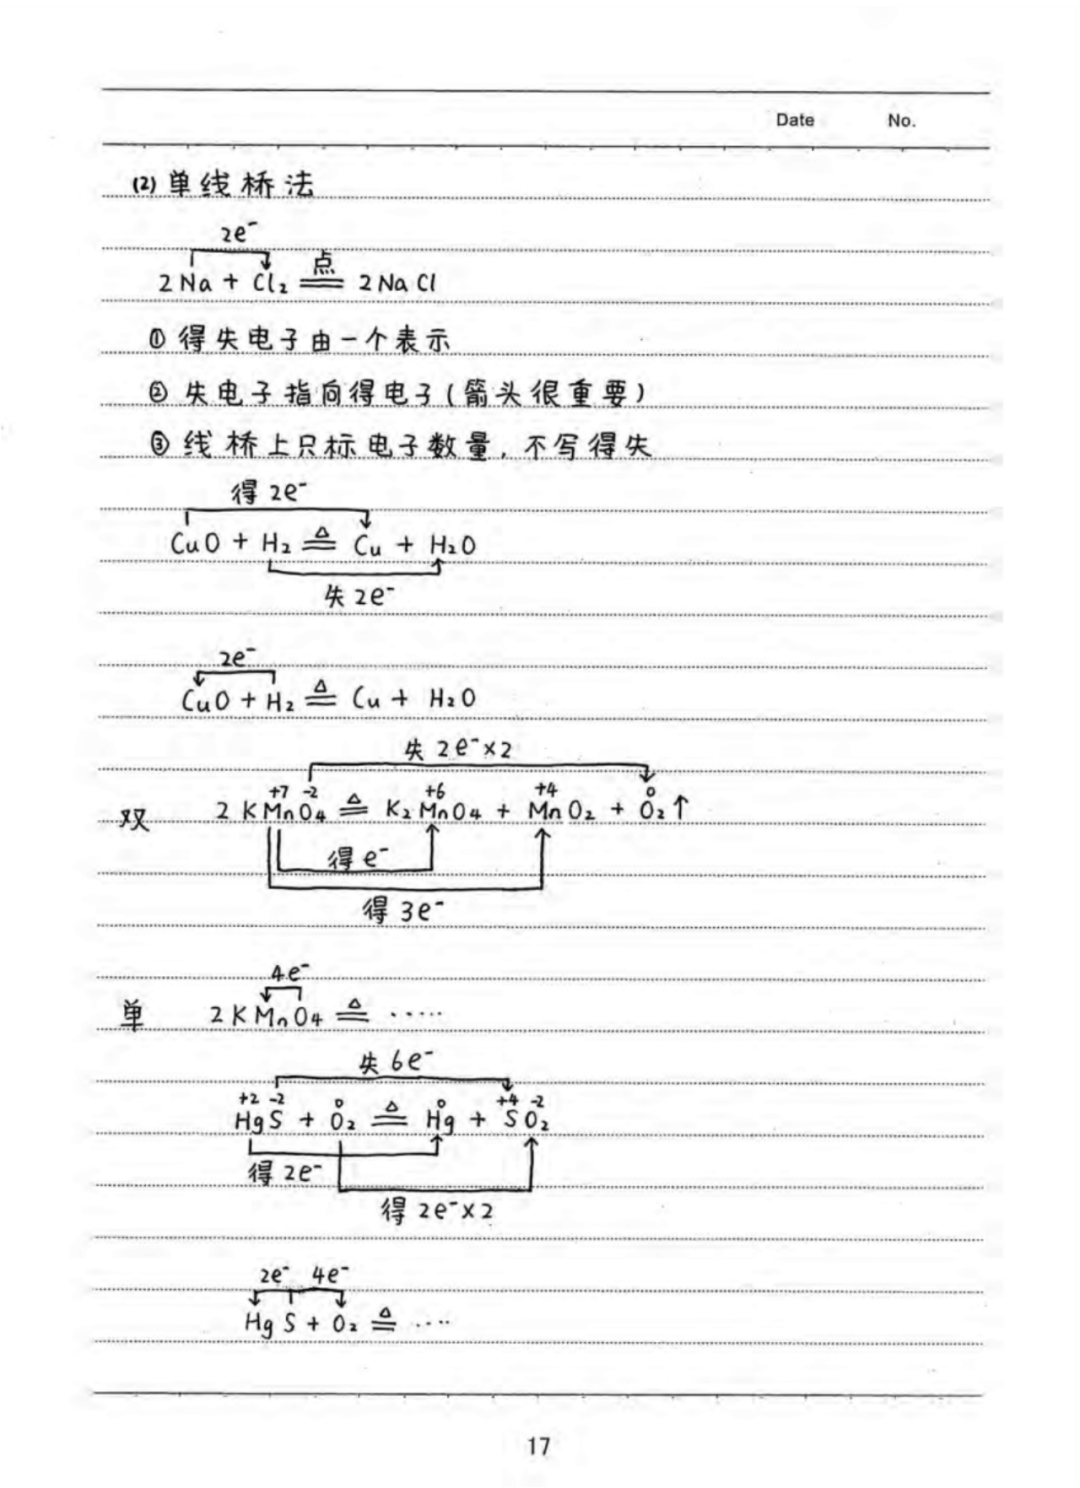 Date No.
(2) 单线桥法
2e⁻
2Na + Cl₂ 点═ 2NaCl
① 得失电子由一个表示
② 失电子指向得电子(箭头很重要)
③ 线桥上只标电子数量,不写得失
得 2e⁻
CuO + H₂ ≜ Cu + H₂O
失 2e⁻
2e⁻
CuO + H₂ ≜ Cu + H₂O
失 2e⁻×2
+7 -2 +6 +4 0
双 2KMnO₄ ≜ K₂MnO₄ + MnO₂ + O₂↑
得 e⁻
得 3e⁻
4e⁻
单 2KMnO₄ ≜ ·····
失 6e⁻
+2 -2 0 0 +4 -2
HgS + O₂ ≜ Hg + SO₂
得 2e⁻
得 2e⁻×2
2e⁻ 4e⁻
HgS + O₂ ≜ ····
17